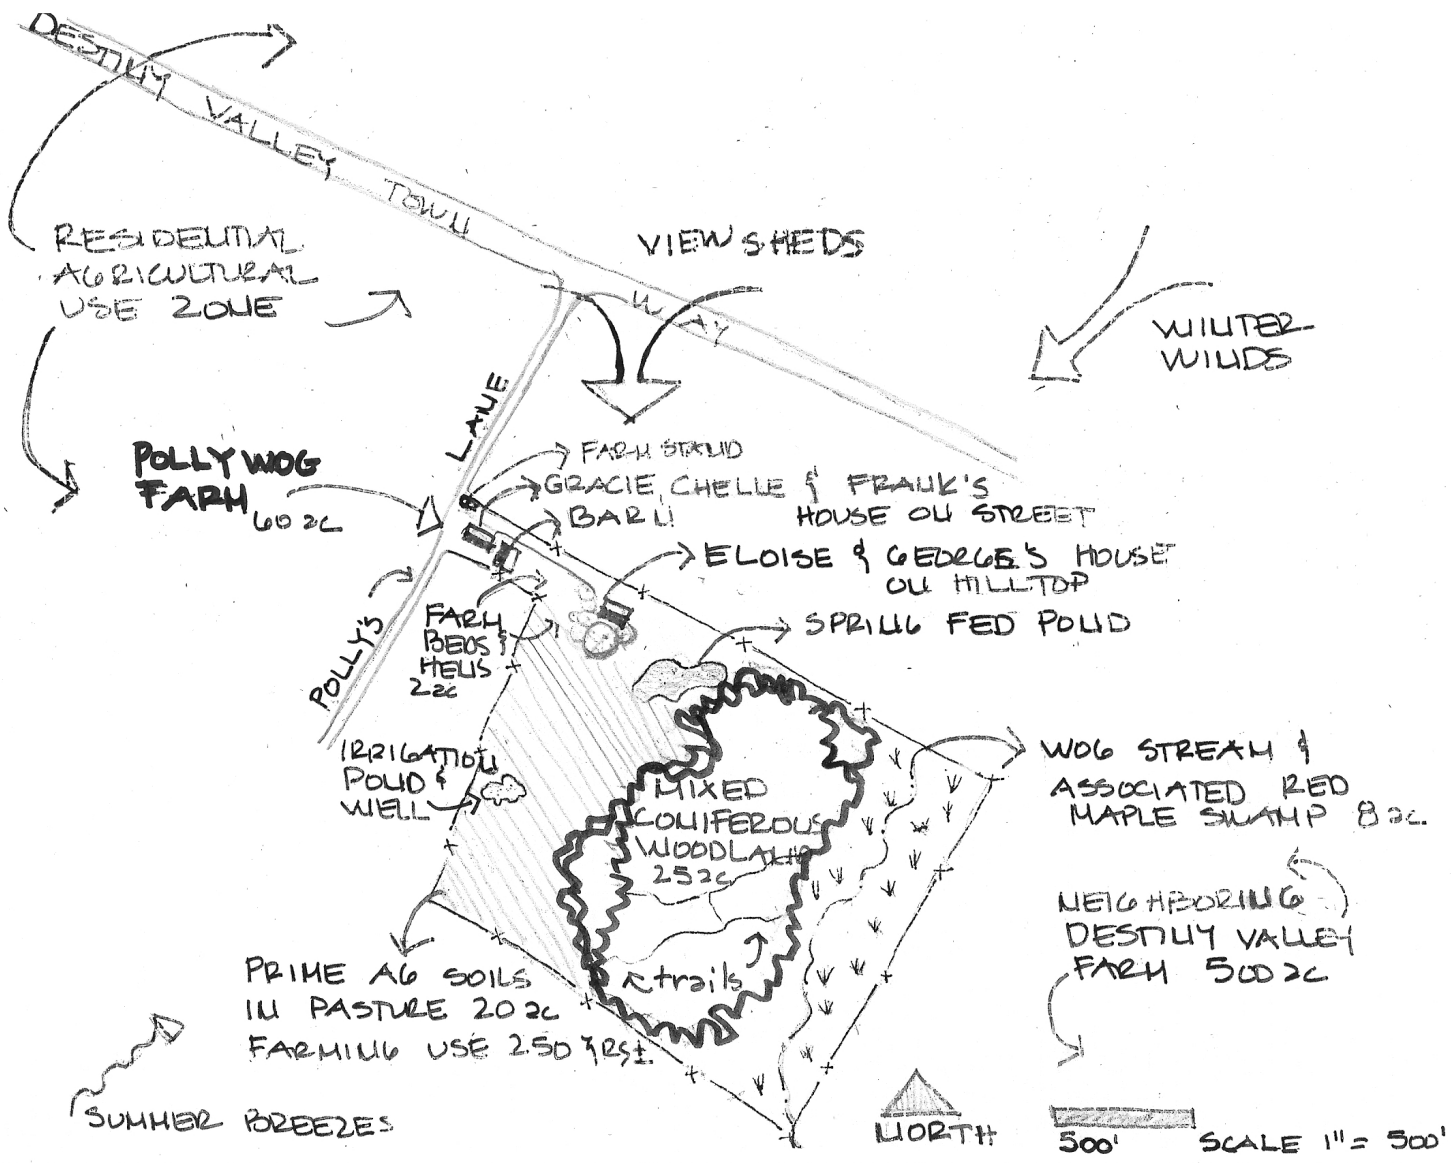 DESTINY VALLEY TOWN WAY
RESIDENTIAL
AGRICULTURAL
USE ZONE
VIEWSHEDS
WINTER
WINDS
LANE
POLLY'S
POLLYWOG
FARM
60 ac
FARM STAND
GRACIE, CHELLE & FRANK'S
HOUSE ON STREET
BARN
ELOISE & GEORGE'S HOUSE
ON HILLTOP
SPRING FED POND
FARM
BEDS &
HENS
2 ac
IRRIGATION
POND &
WELL
MIXED
CONIFEROUS
WOODLAND
25 ac
trails
WOG STREAM &
ASSOCIATED RED
MAPLE SWAMP 8 ac.
NEIGHBORING
DESTINY VALLEY
FARM 500 ac
PRIME AG SOILS
IN PASTURE 20 ac
FARMING USE 250 YRS±
SUMMER BREEZES
NORTH
500'
SCALE 1" = 500'